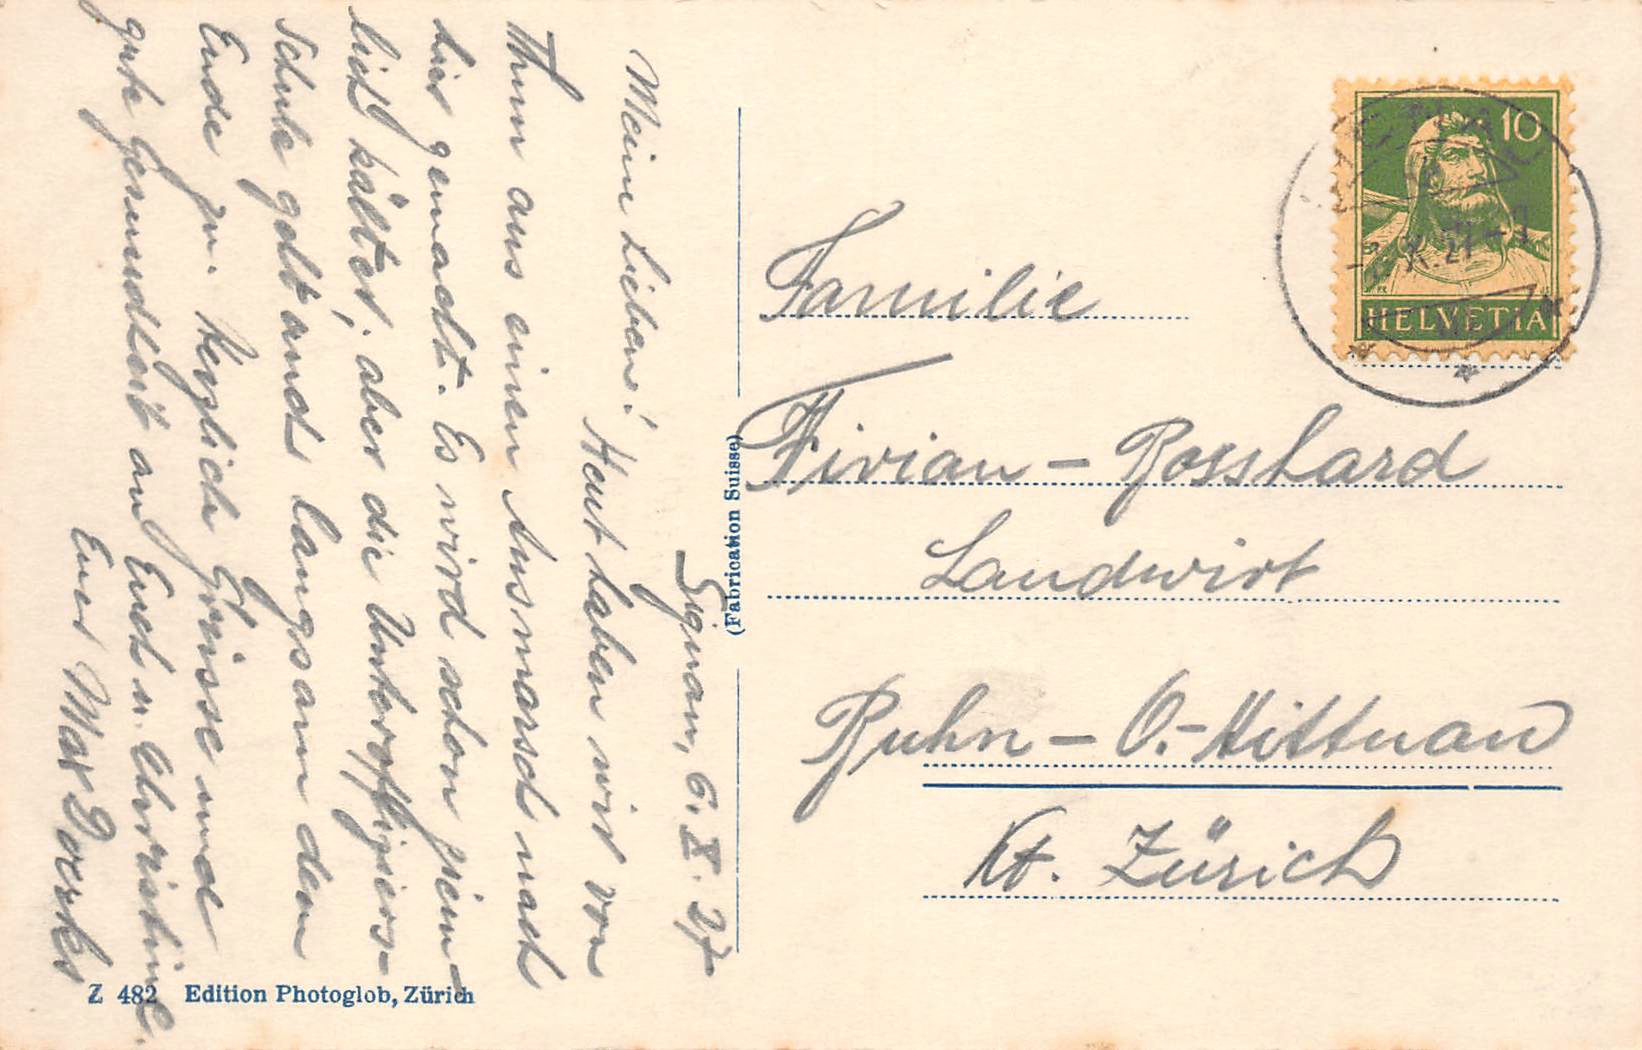 Signau, 6. X. 27
Meine Lieben! Heut haben wir von
Thun aus einen Ausmarsch nach
hier gemacht. Es wird schon ziem-
lich kälter, aber die Unteroffiziers-
schule geht auch langsam dem
Ende zu. Herzliche Grüsse und
gute Gesundheit an Euch u. Christine.
Euer Max
Familie
Vivian - Bosshard
Landwirt
Ruhn - O. - Hittnau
Kt. Zürich
10
HELVETIA
(Fabrication Suisse)
Z 482 Edition Photoglob, Zürich